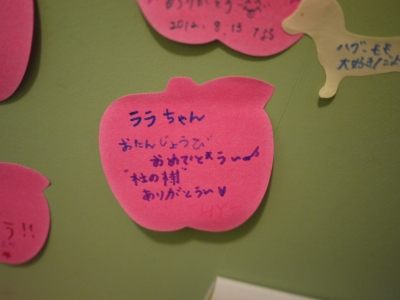 ありがとう
2012.8.13
ハグ・もも
大好き!
ララちゃん
おたんじょうび
おめでとぅい♪
"杜の樹"
ありがとうい♥
う!!